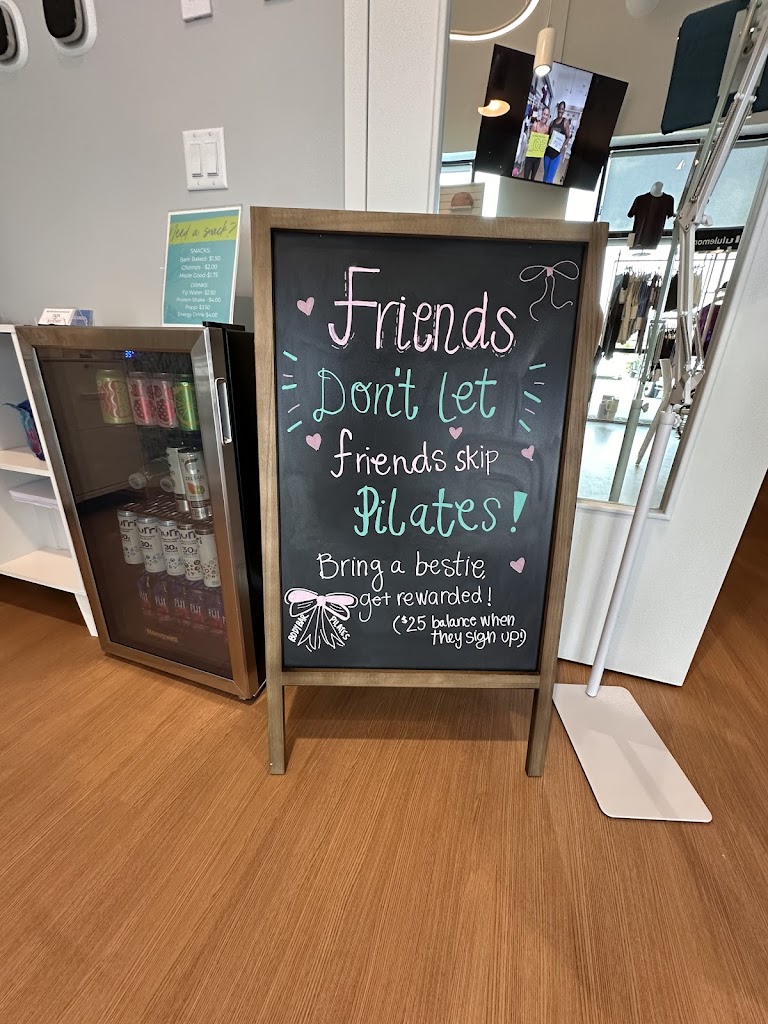 Need a snack?
SNACKS:
Barn Baked- $1.50
Chomps - $2.00
Made Good-$1.75
DRINKS:
Fiji Water- $2.50
Protein Shake - $4.00
Poppi- $3.50
Energy Drink $4.00
Friends
Don't Let
friends skip
Pilates!
Bring a bestie,
get rewarded!
($25 balance when
they sign up!)
BODYBAR PILATES
lululemon
30g
30g
30g